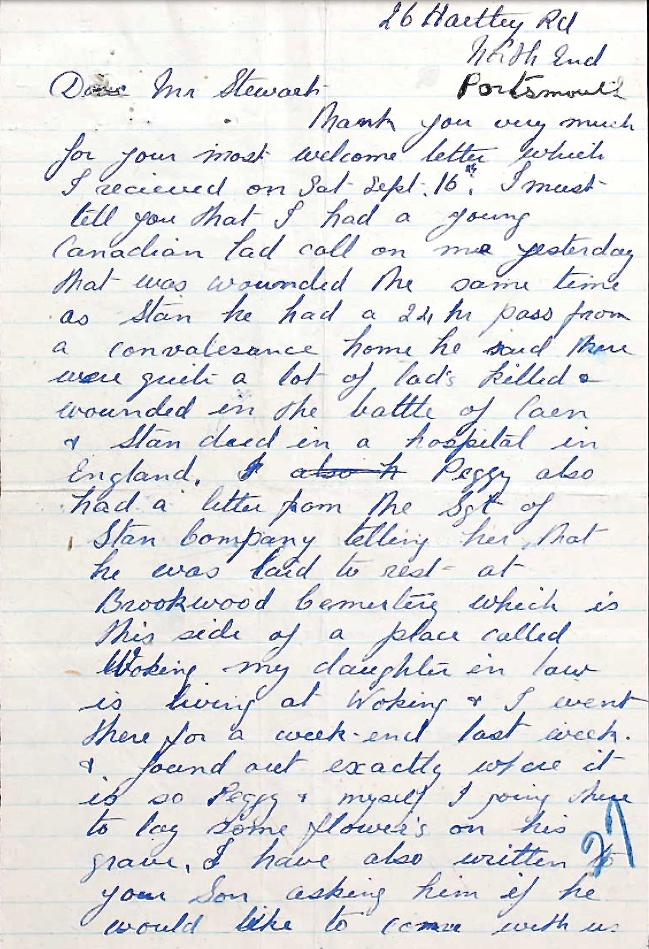 26 Hartley Rd
North End
Portsmouth
Dear Mr Stewart
Thank you very much
for your most welcome letter which
I recieved on Sat Sept. 16th. I must
tell you that I had a young
Canadian lad call on me yesterday
that was wounded the same time
as Stan he had a 24 hr pass from
a convalesance home he said there
were quite a lot of lad's killed &
wounded in the battle of Caen
& Stan died in a hospital in
England. I also h Peggy also
had a letter from the Sgt of
Stan Company telling her that
he was laid to rest at
Brookwood Cemertery which is
this side of a place called
Woking my daughter in law
is living at Woking & I went
there for a week-end last week.
& found out exactly where it
is so Peggy & myself I going there
to lay some flower's on his
grave, I have also written to
your Son asking him if he
would like to come with us
27